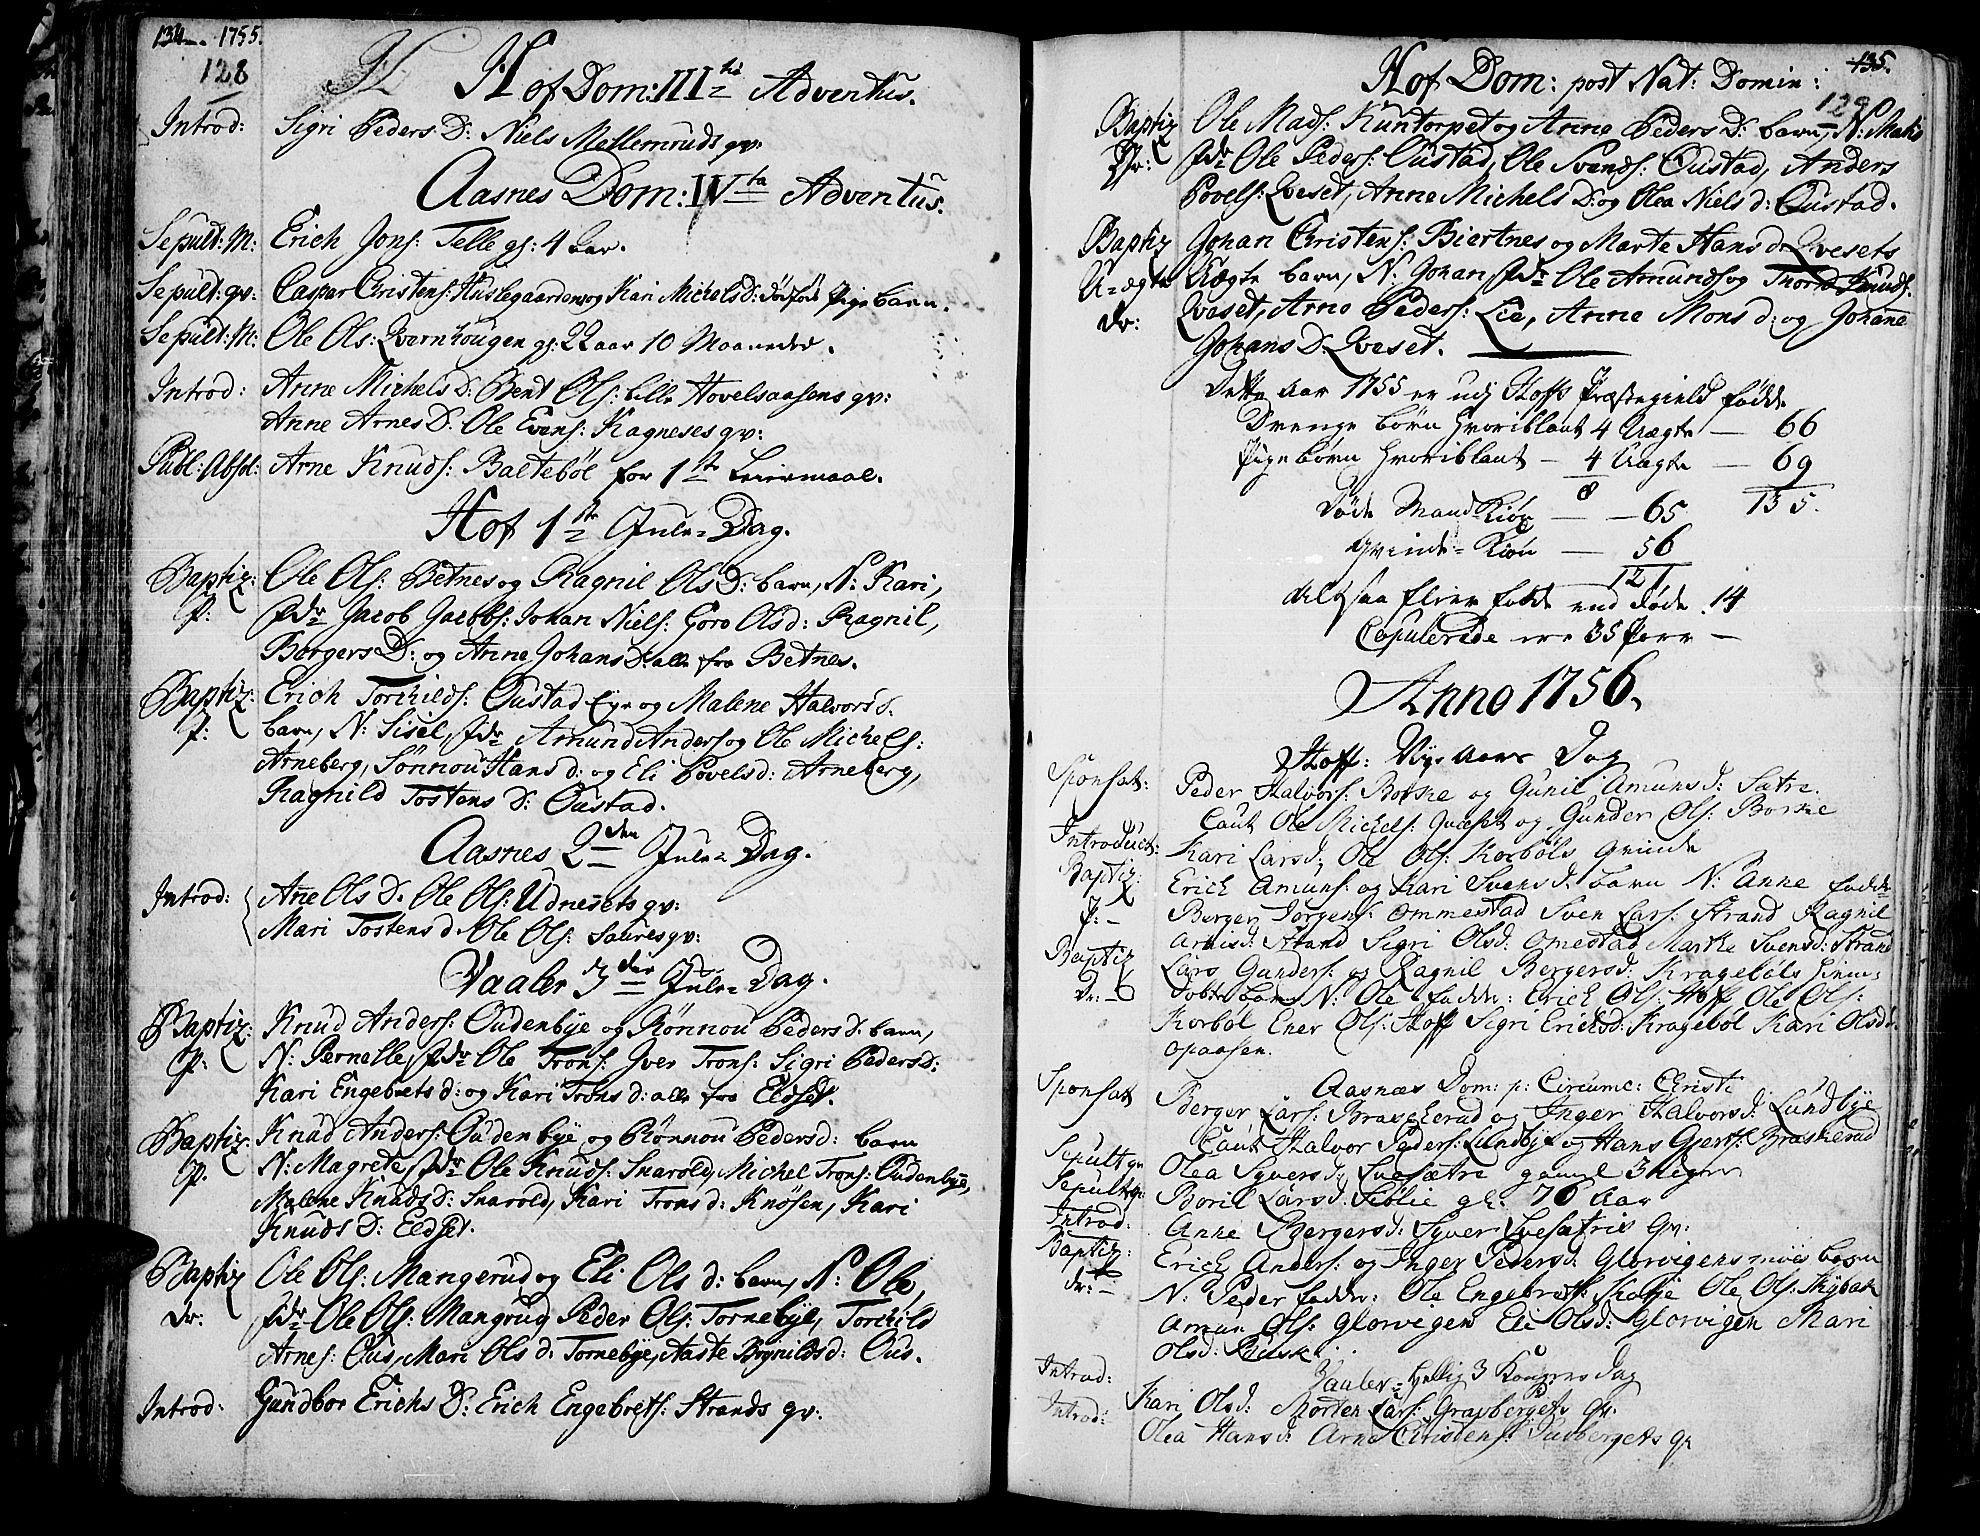 134. 1755.
128
Hof Dom: III tia Adventus.
Introd: Sigri Peders D: Niels Mellemruds qv:
Aasnes Dom: IV ta Adventus.
Sepult: M: Erich Jons: Telle gl: 4 aar.
Sepult: qv: Caspar Christens: Huslegaarden og Kari Michels D: dödföd Pige barn.
Sepult: M: Ole Ols: Qvernhougen gl: 22 aar 10 Maaneder.
Introd: Anne Michels D: Bent Ols: lille Hovelsaasens qv:
Anne Arnes D: Ole Evens: Kagneses qv:
Publ: Absol: Arne Knuds: Balteböl for 1ste Leiermaal.
Hof 1ste Jule-Dag.
Baptiz: Ole Ols: Betnes og Ragnil Ols D: barn, N: Kari,
P: fdr Jacob Jacobs: Johan Niels: Goro Ols d: Ragnil,
Borgers D: og Anne Johans D: alle fra Betnes.
Baptiz: Erich Torchilds: Oustad Eye og Malene Halvors d:
P: barn, N: Sisel, fdr Amund Anders: og Ole Michels:
Arneberg, Sönnou Hans d: og Eli Povels d: Arneberg,
Ragnild Tostens D: Oustad.
Aasnes 2den Jule-Dag.
Introd: Anne Ols D. Ole Ols: Udnesets qv:
Mari Tostens d. Ole Ols: Saures qv:
Vaaler 3die Jule-Dag.
Baptiz: Knud Anders: Oudenbye og Rönnou Peders D: barn,
P: N: Pernelle, fdr Ole Trons: Iver Trons: Sigri Peders D:
Kari Engebrets d: og Kari Trons d: alle fra Eldset.
Baptiz: Knud Anders: Oudenbye og Rönnou Peders d: barn
P. N: Magrete, fdr Ole Knuds: Snarold, Michel Trons: Oudenbye,
Malene Knuds D: Snarold, Kari Trons d: Knösen, Kari
Knuds D: Eldset.
Baptiz Ole Ols: Mangerud og Eli Ols d: barn, N: Ole,
Dr: fdr Ole Ols: Mangrud, Peder Ols: Tornebye, Torchild
Arnes: Ous, Mari Ols d: Tornebye, Aaste Brynilds d: Ous.
Introd: Gundbor Erichs D: Erich Engebrets: Strands qv:
135.
129
Hof Dom: post Nat: Domin:
Baptiz Ole Mads: Kuntorpet og Anne Peders D: barn, N: Mats
Dr: fdr Ole Peders: Oustad, Ole Svends: Oustad, Anders
Povels: Qveset, Anne Michels D: og Olea Niels d: Oustad.
Baptiz Johan Christens: Biertnes og Marte Hans d: Qvesets
U-ægte Uægte barn, N: Johan, fdr Ole Amunds: og Knuds:
Dr: Qveset, Arne Peders: Lie, Anne Mons d: og Johanne
Johans D: Qveset.
Dette Aar 1755 er udj Hoffs Præstegield födde
Drenge börn hvoriblant 4 Uægte — 66
Pige börn hvoriblant — 4 Uægte — 69
8 135.
Döde Mand-Kiön — 65
Qvinde-Kiön — 56
121
Altsaa fleere födde end döde 14
Copulerede ere 35 Parr —
Anno 1756.
Hoff: Nye Aars Dag
Sponsat: Peder Halvors: Borke og Gunil Amuns d: Sætre.
Caut Ole Michels: Qveset og Gunder Ols: Borke
Introduct: Kari Lars d: Ole Ols: Korböls Qvinde
Baptiz: Erich Amuns: og Kari Svens d: barn N: Anne fadde-
P: - Berger Jörgens: Ommestad Sven Lars: Strand Ragnil
Arnis d: Strand Sigri Ols d: Omestad Marthe Svens d: Strand
Baptiz Lars Gunders: og Ragnil Bergers d: Krageböls hiem-
Dr: - döbte barn N: Ole fadder: Erich Ols: Hoff Ole Ols:
Korböl Ener Ols: Hoff Sigri Erichs d: Krageböl Kari Ols d:
Opaasen.
Aasnæs Dom: p: Circumc: Christi
Sponsat Berger Lars: Braskerud og Inger Halvors d: Lundbye
Caut Halvor Peders: Lundbye og Hans Gierts: Braskerud
Sepult qv Olea Syvers d: Evesætre gamel 3 Uger
Sepult qv: Boril Lars d: gl: 70 Aar
Introd: Anne Bergers d: Syver Evesætris Qv:
Baptiz: Erich Anders: og Inger Peders d: Glorvigens moes barn
Dr: - N: Peder fadder: Ole Engebrets: Skolje Ole Ols: Nybak
Amun Ols: Glorvigen Eli Ols d: Glorvigen Mari
Ols d: Busk.
Vaaler: Hellig 3 Kongers Dag
Introd: Kari Ols d: Morten Lars: Grasbergets Qv:
Introd: Olea Hans d: Arne Christens: Qv